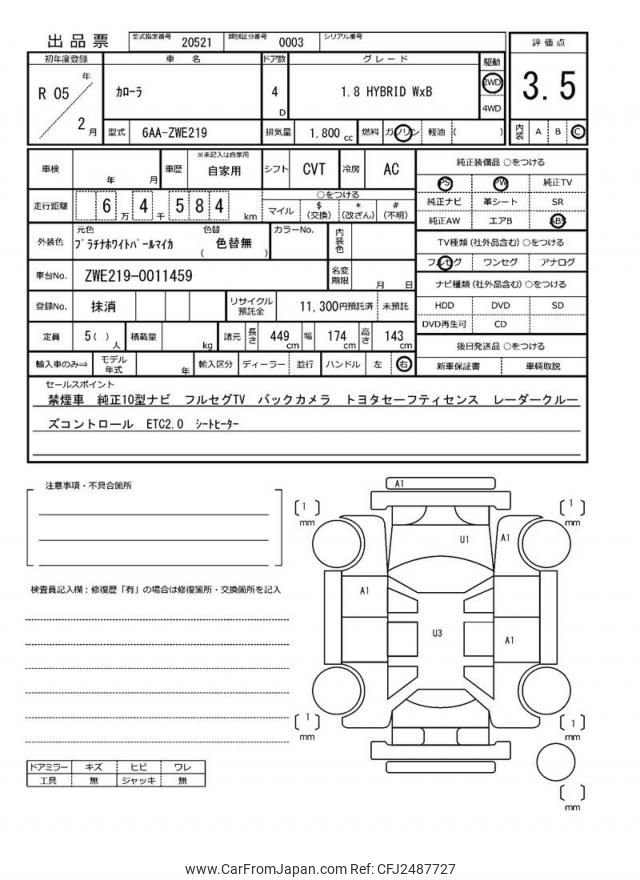 出品票 型式指定番号 20521 類別区分番号 0003 シリアル番号
評価点
3.5
内装 A B C
初年度登録 車名 ドア数 グレード 駆動
R 05 年 2 月 カローラ 4 D 1.8 HYBRID WxB 2WD
4WD
型式 6AA-ZWE219 排気量 1.800 cc 燃料 ガソリン 軽油 ( )
車検 年 月 車歴 ※未記入は自家用 自家用 シフト CVT 冷房 AC
走行距離 6 万 4 千 5 8 4 km
○をつける
マイル $ (交換) * (改ざん) # (不明)
外装色 元色 プラチナホワイトパールマイカ 色替 ( 色替無 ) カラーNo. 内装色
車台No. ZWE219-0011459 名変期限 月 日
登録No. 抹消 リサイクル預託金 11,300円預託済 未預託
定員 5( ) 人 積載量 kg 諸元 長さ 449 cm 幅 174 cm 高さ 143 cm
輸入車のみ⇒ モデル年式 年 輸入区分 ディーラー 並行 ハンドル 左 右
純正装備品 ○をつける
PS PW 純正TV
純正ナビ 革シート SR
純正AW エアB ABS
TV種類 (社外品含む) ○をつける
フルセグ ワンセグ アナログ
ナビ種類 (社外品含む) ○をつける
HDD DVD SD
DVD再生可 CD
後日発送品 ○をつける
新車保証書 車輌取説
セールスポイント
禁煙車 純正10型ナビ フルセグTV バックカメラ トヨタセーフティセンス レーダークルー
ズコントロール ETC2.0 シートヒーター
注意事項・不具合箇所
検査員記入欄：修復歴「有」の場合は修復箇所・交換箇所を記入
ドアミラー キズ ヒビ ワレ
工具 無 ジャッキ 無
A1
[ 1 ] mm
[ 1 ] mm
U1
A1
A1
U3
A1
[ 1 ] mm
[ 1 ] mm
[ ] mm
www.CarFromJapan.com Ref: CFJ2487727